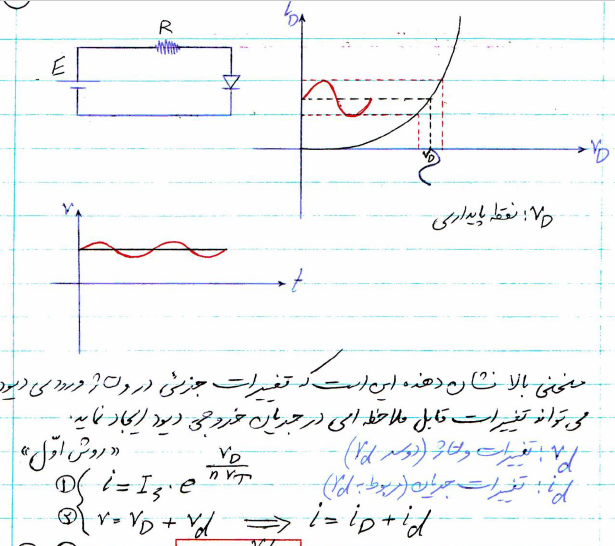 R
E
i_D
V_D
V_D
V_D: نقطه پایداری
v
t
منحنی بالا نشان دهنده این است که تغییرات جزئی در ولتاژ ورودی دیود
می‌تواند تغییرات قابل ملاحظه امی در جریان خروجی دیود ایجاد نماید.
«روش اوّل» V_d: تغییرات ولتاژ (دوسر V_d)
i_d: تغییرات جریان (مربوط به V_d)
① i = I_s . e^{V_D / n V_T}
② v = V_D + V_d ⟹ i = i_D + i_d